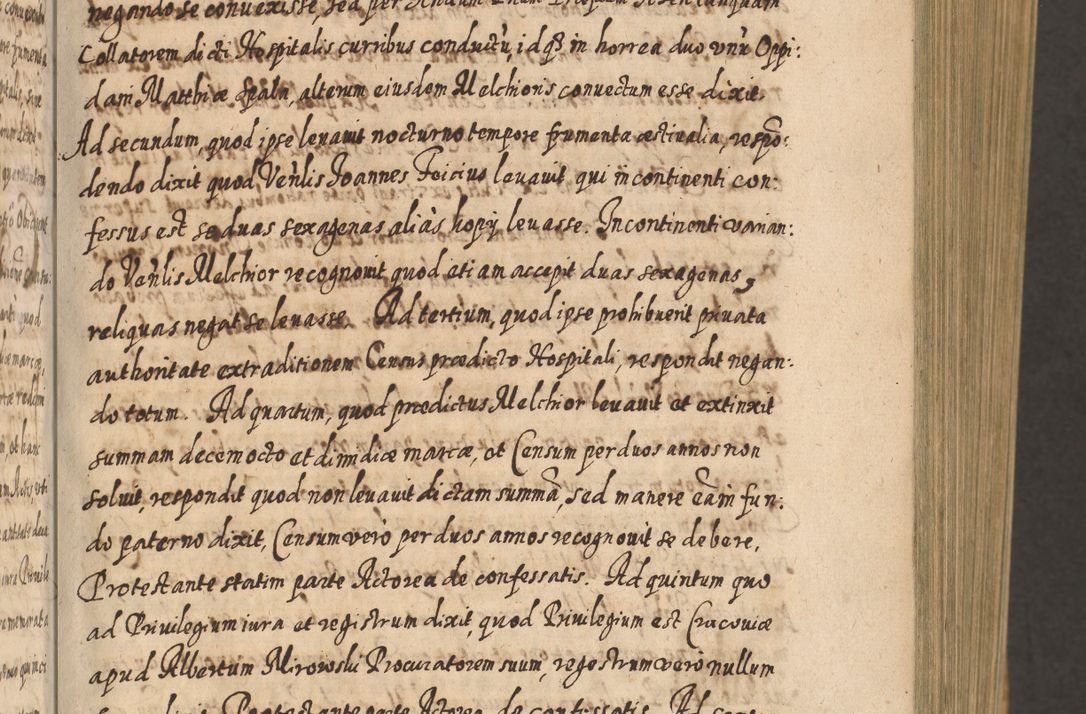 negando se convexisse, sed per
Collatorem dicti Hospitalis curribus conductũ, idq3 in horrea duo vnũ Oppi:
dani Matthiæ Spala, alterum eiusdem Melchioris convectum esse dixit.
Ad secundum, quod ipse levavit nocturno tempore frumenta æstivalia, respõ:
dendo dixit quod Veñlis Joannes Foicius levavit qui incontinenti con:
fessus est se duas sexagenas aliàs kopij levasse. Incontinenti varian:
do Veñlis Melchior recognovit quod etiam accepit duas sexagenas,
reliquas negat se levasse. Ad tertium, quod ipse prohibuerit privata
authoritate extraditionem Census prædicto Hospitali, respondit negan:
do totum. Ad quartum, quod prædictus Melchior levavit et extinxit
summam decem octo et dimidiæ marcæ, et Censum per duos annos non
solvit, respondit quod non levavit dictam summã, sed manere eã in fun:
do paterno dixit, Censum verò per duos annos recognovit se debere,
Protestante statim parte Actorea de confessatis. Ad quintum quo
ad Privilegium iura et registrum dixit, quod Privilegium est Cracoviæ
apud Albertum Mirowski Procuratorem suum, regestrum verò nullum
Protestante parte Actorea de confessatis. Ad